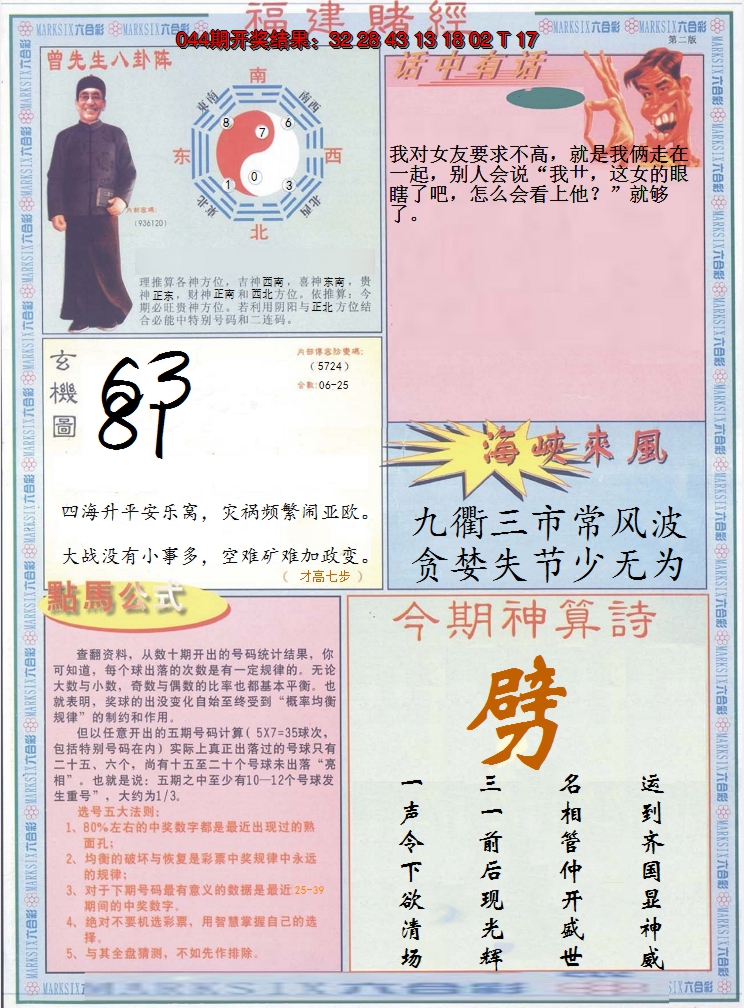 福建賭經
044期开奖结果：32 28 43 13 18 02 T 17
第二版
MARKSIX六合彩
曾先生八卦阵
南
东南
南西
8
7
6
东
西
1
0
3
東北
北西
北
內部密碼：
(936120)
理推算各神方位，吉神西南，喜神东南，贵
神正东，财神正南和西北方位。依推算：今
期必旺贵神方位。若利用阴阳与正北方位结
合必能中特别号码和二连码。
话中有话
我对女友要求不高，就是我俩走在
一起，别人会说“我艹，这女的眼
瞎了吧，怎么会看上他？”就够
了。
玄機圖
63
81
（5724）
合數:06-25
四海升平安乐窝，灾祸频繁闹亚欧。
大战没有小事多，空难矿难加政变。
（ 才高七步 ）
海峽來風
九衢三市常风波
贪婪失节少无为
點馬公式
查翻资料，从数十期开出的号码统计结果，你
可知道，每个球出落的次数是有一定规律的。无论
大数与小数，奇数与偶数的比率也都基本平衡。也
就表明，奖球的出没变化自始至终受到“概率均衡
规律”的制约和作用。
但以任意开出的五期号码计算（5X7=35球次，
包括特别号码在内）实际上真正出落过的号球只有
二十五、六个，尚有十五至二十个号球未出落“亮
相”。也就是说：五期之中至少有10—12个号球发
生重号”，大约为1/3。
选号五大法则：
1、80%左右的中奖数字都是最近出现过的熟
面孔；
2、均衡的破坏与恢复是彩票中奖规律中永远
的规律；
3、对于下期号码最有意义的数据是最近25-39
期间的中奖数字。
4、绝对不要机选彩票，用智慧掌握自己的选
择。
5、与其全盘猜测，不如先作排除。
今期神算詩
劈
运到齐国显神威
名相管仲开盛世
三一前后现光辉
一声令下欲清场